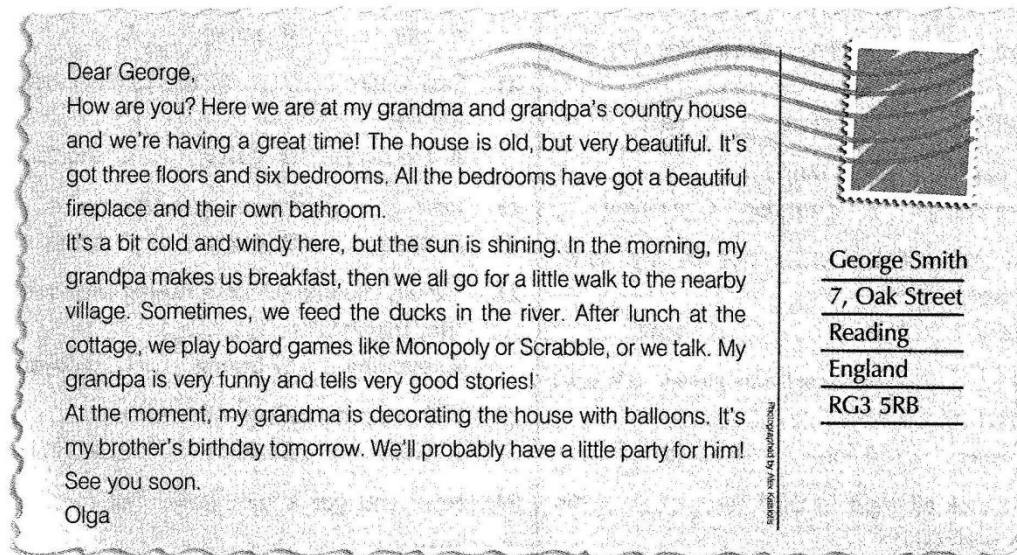 Dear George,
How are you? Here we are at my grandma and grandpa's country house
and we're having a great time! The house is old, but very beautiful. It's
got three floors and six bedrooms. All the bedrooms have got a beautiful
fireplace and their own bathroom.
It's a bit cold and windy here, but the sun is shining. In the morning, my
grandpa makes us breakfast, then we all go for a little walk to the nearby
village. Sometimes, we feed the ducks in the river. After lunch at the
cottage, we play board games like Monopoly or Scrabble, or we talk. My
grandpa is very funny and tells very good stories!
At the moment, my grandma is decorating the house with balloons. It's
my brother's birthday tomorrow. We'll probably have a little party for him!
See you soon.
Olga
Photographed by Alex
George Smith
7, Oak Street
Reading
England
RG3 5RB